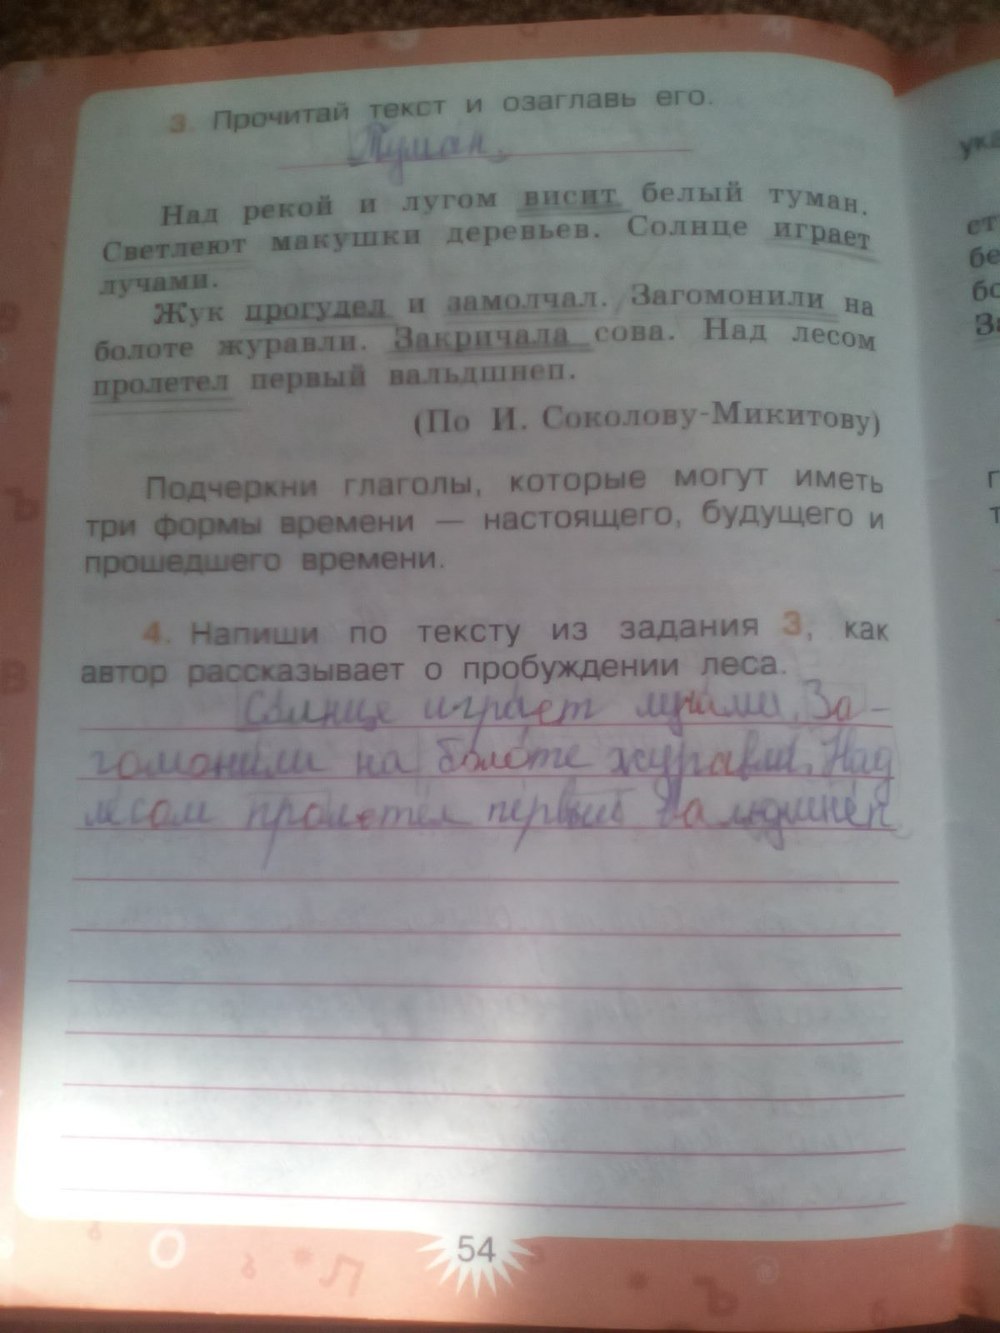 3. Прочитай текст и озаглавь его.
Туман
Над рекой и лугом висит белый туман.
Светлеют макушки деревьев. Солнце играет
лучами.
Жук прогудел и замолчал. Загомонили на
болоте журавли. Закричала сова. Над лесом
пролетел первый вальдшнеп.
(По И. Соколову-Микитову)
Подчеркни глаголы, которые могут иметь
три формы времени — настоящего, будущего и
прошедшего времени.
4. Напиши по тексту из задания 3, как
автор рассказывает о пробуждении леса.
Солнце играет лучами. За-
гомонили на болоте журавли. Над
лесом пролетел первый
54